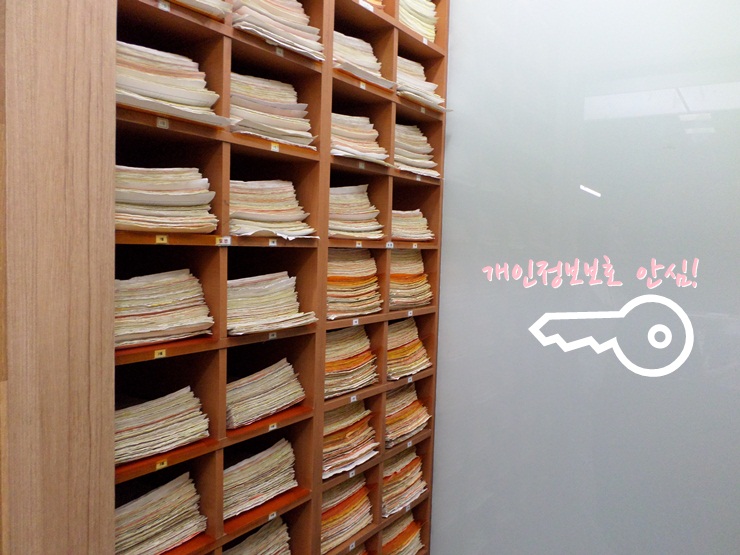 개인정보보호 안심!